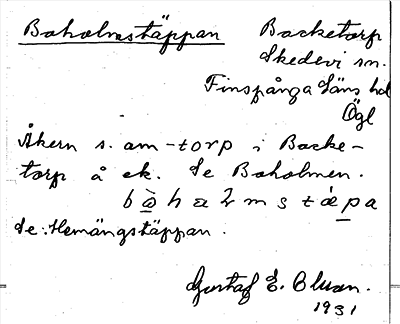 Boholmstäppan
Backetorp
Skedevi sn.
Finspånga Läns hd
Ögl
Åkern s. om-torp i Backe-
torp å ek. Se Boholmen.
Se: Hemängstäppan.
Gustaf E.
1931